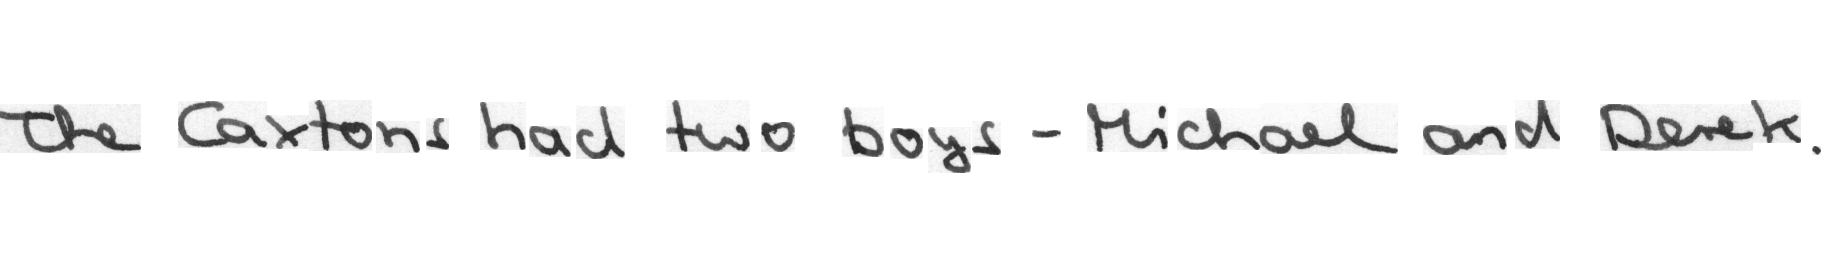 The Caxtons had two boys - Michael and Derek.